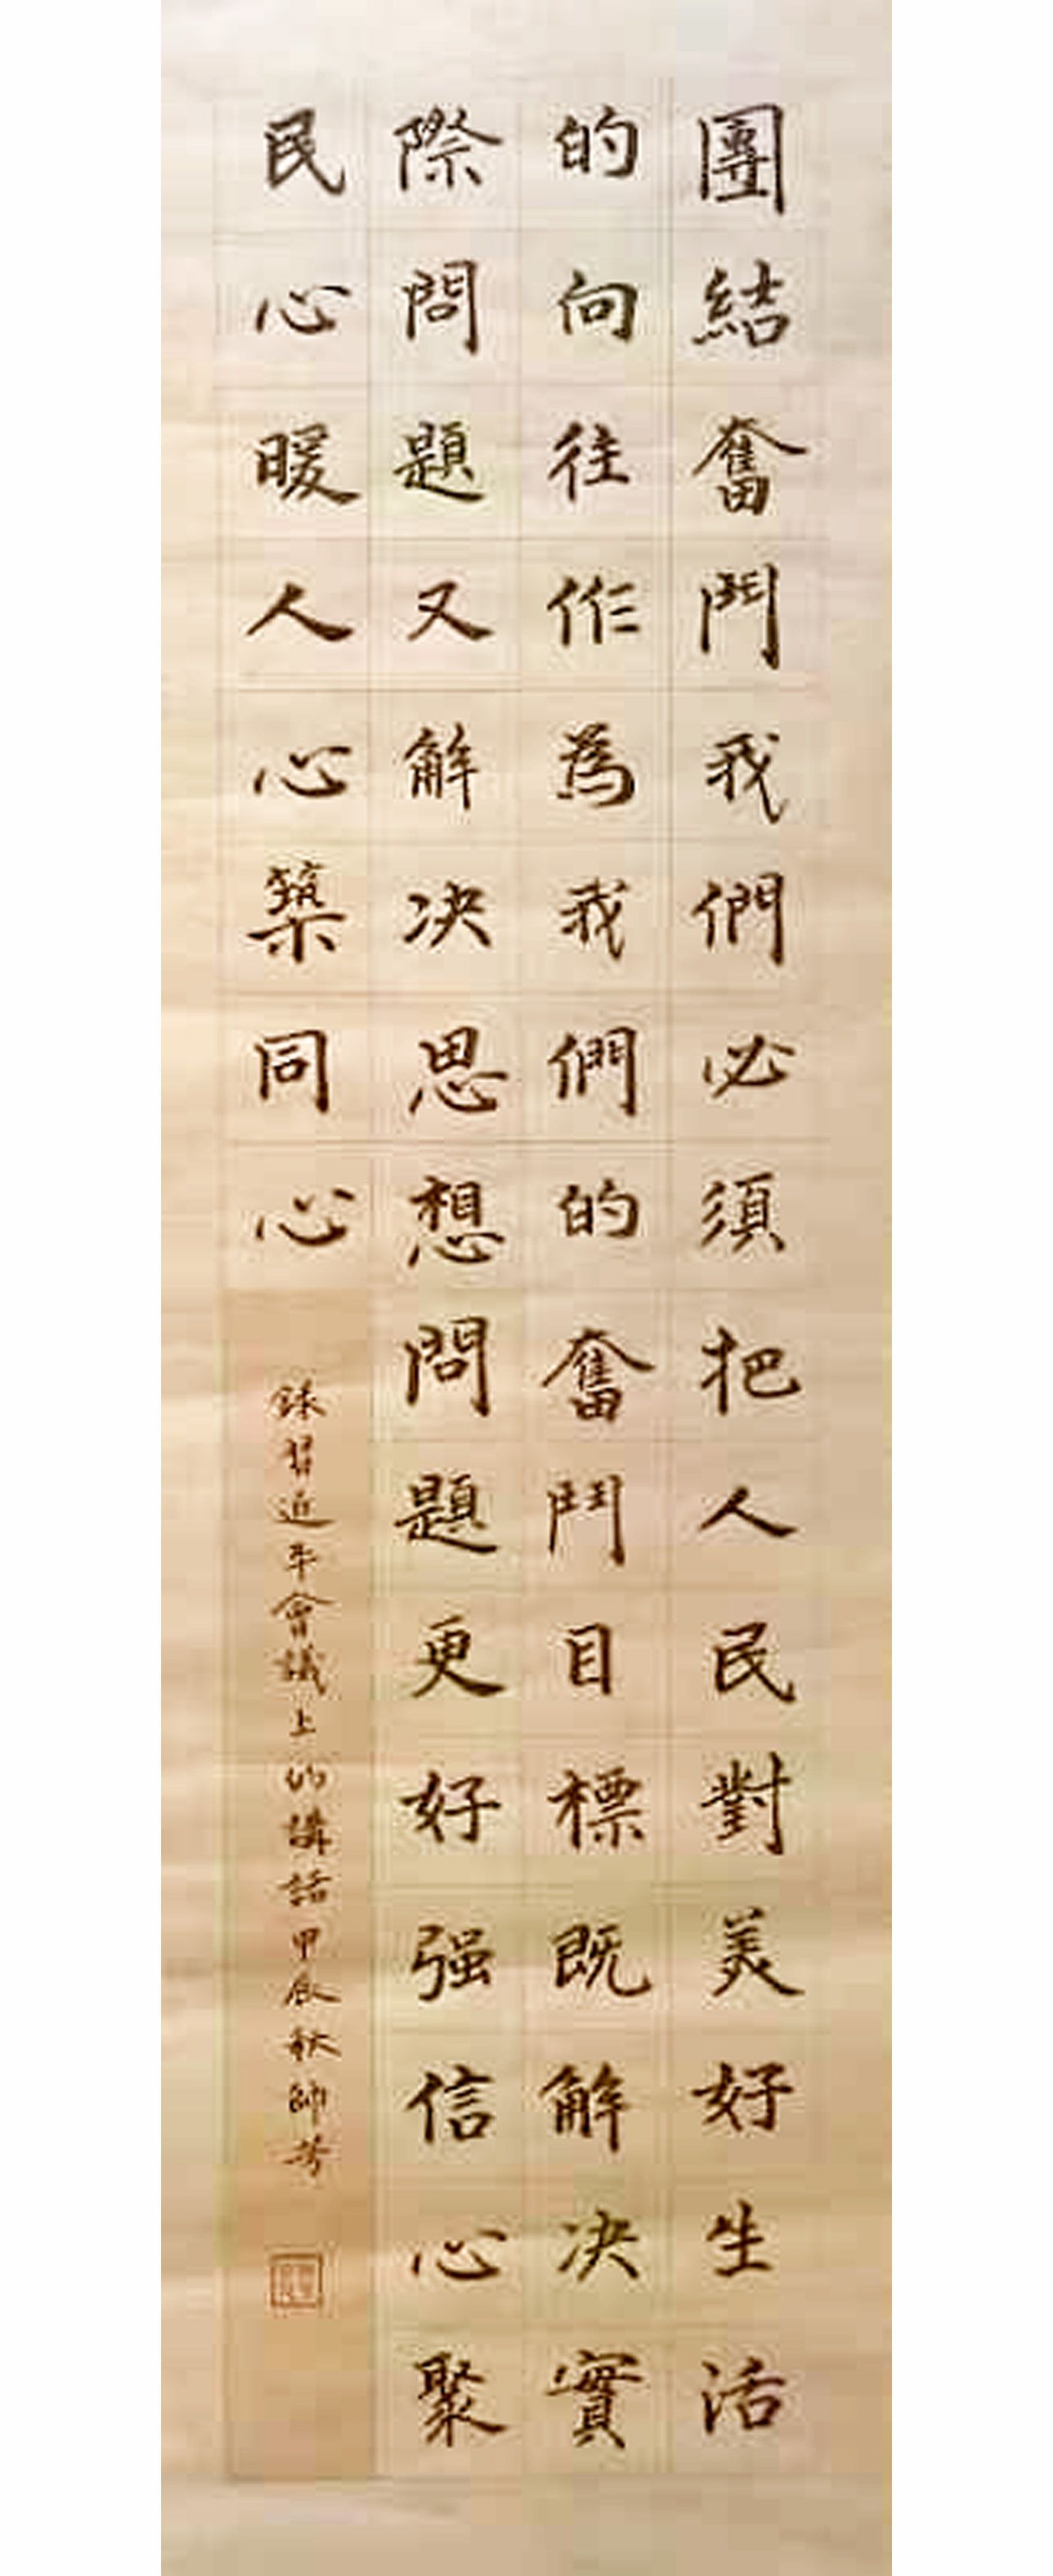 團結奮鬥我們必須把人民對美好生活
的向往作為我們的奮鬥目標既解決實
際問題又解决思想問題更好强信心聚
民心暖人心築同心
錄習近平會議上的講話甲辰秋帥芳